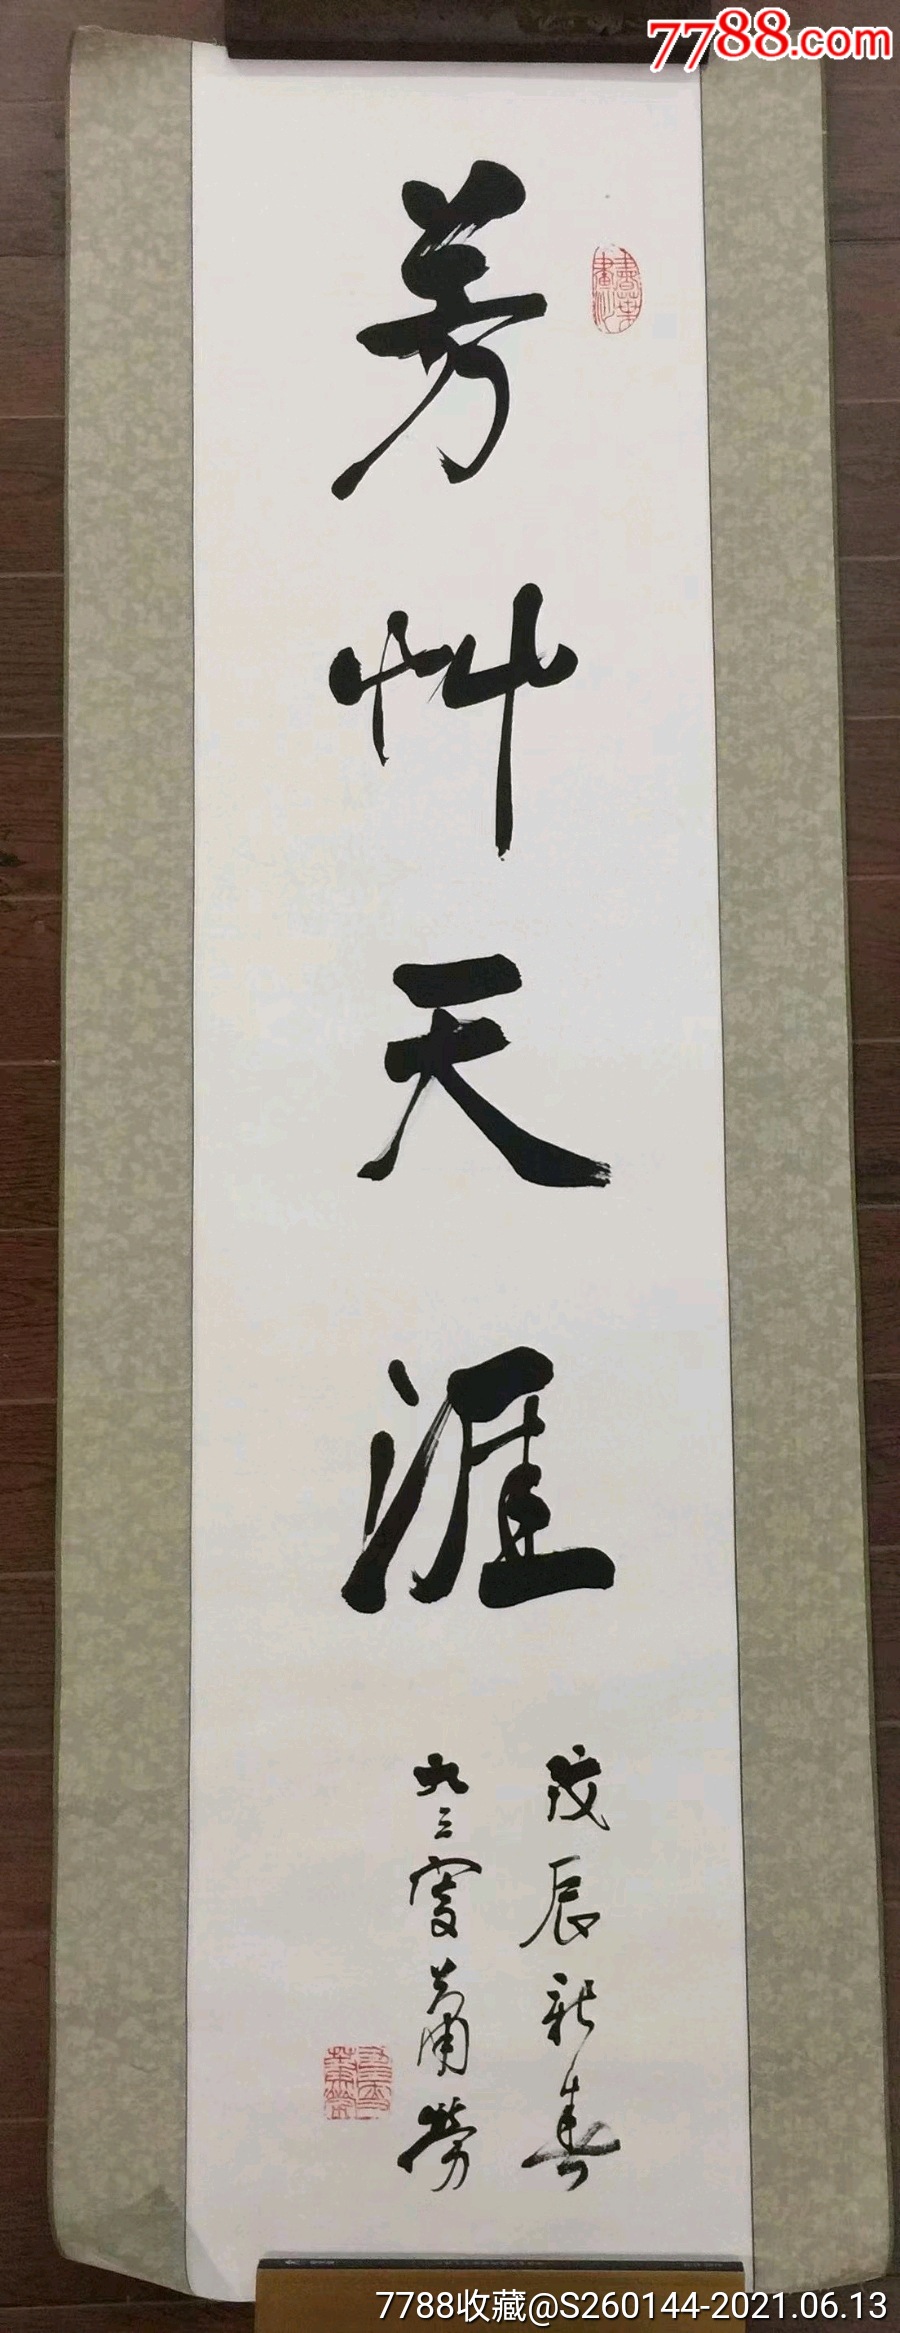 7788.com
芳艸天涯
戊辰新春
九三叟萧劳
7788收藏@S260144-2021.06.13